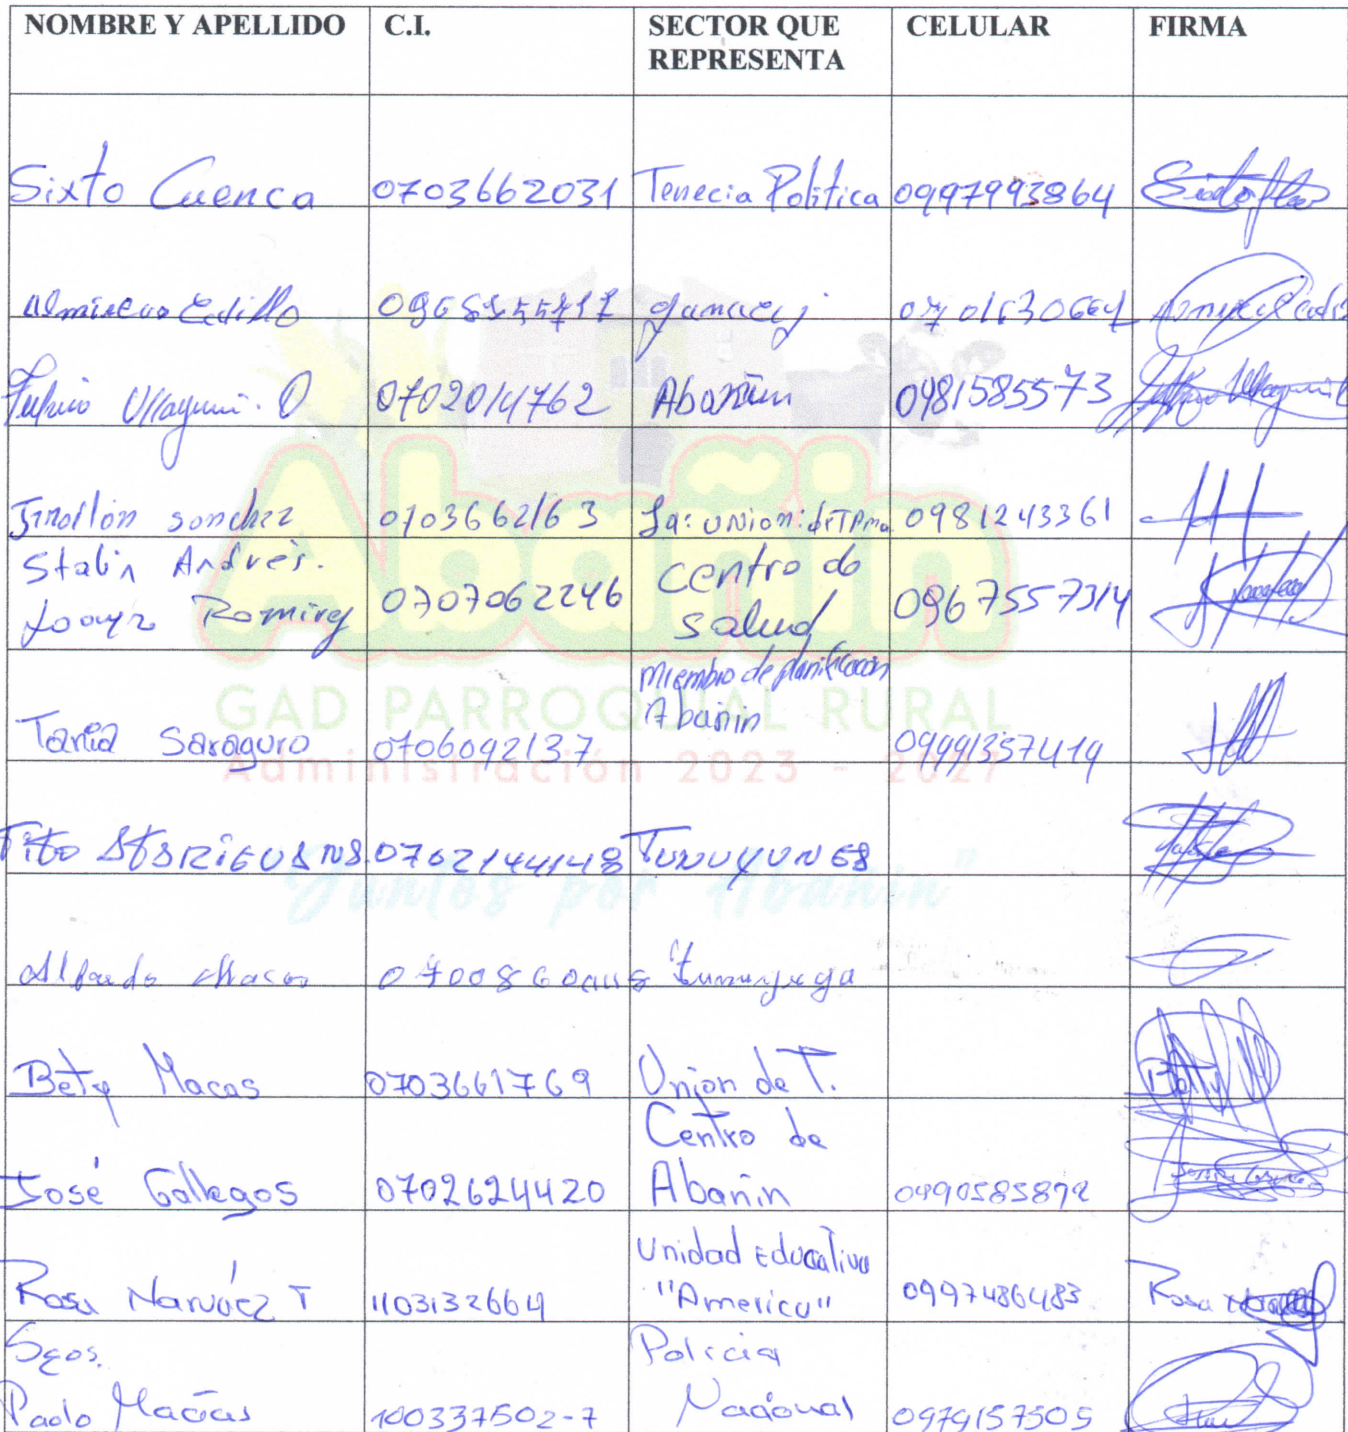 NOMBRE Y APELLIDO C.I. SECTOR QUE REPRESENTA CELULAR FIRMA
Sixto Cuenca 0703662031 Tenecia Política 0997993864
0701630664
0702014762 Abañin 0981585573
sanchez 0703662163 La: UNION: 0981243361
Stalin Andrés.
Loayza Ramirez 0707062246 Centro de salud 0967557314
Tania Saraguro 0706092137 Miembro de planificación Abañin 09991357419
Tito 0702144148
Alfredo Macas
Bety Macas 0703661769 Union de T. Betty
José Gallegos 0702624420 Centro de Abañin 0990585892
Rosa Narváez T 1103132664 Unidad Educativa "America" 0997486483 Rosa
Sgos.
Paolo Macías 100337502-7 Policia Nacional 0979157505
Abañin
GAD PARROQUIAL RURAL
Administración 2023 - 2027
"Juntos por Abañin"